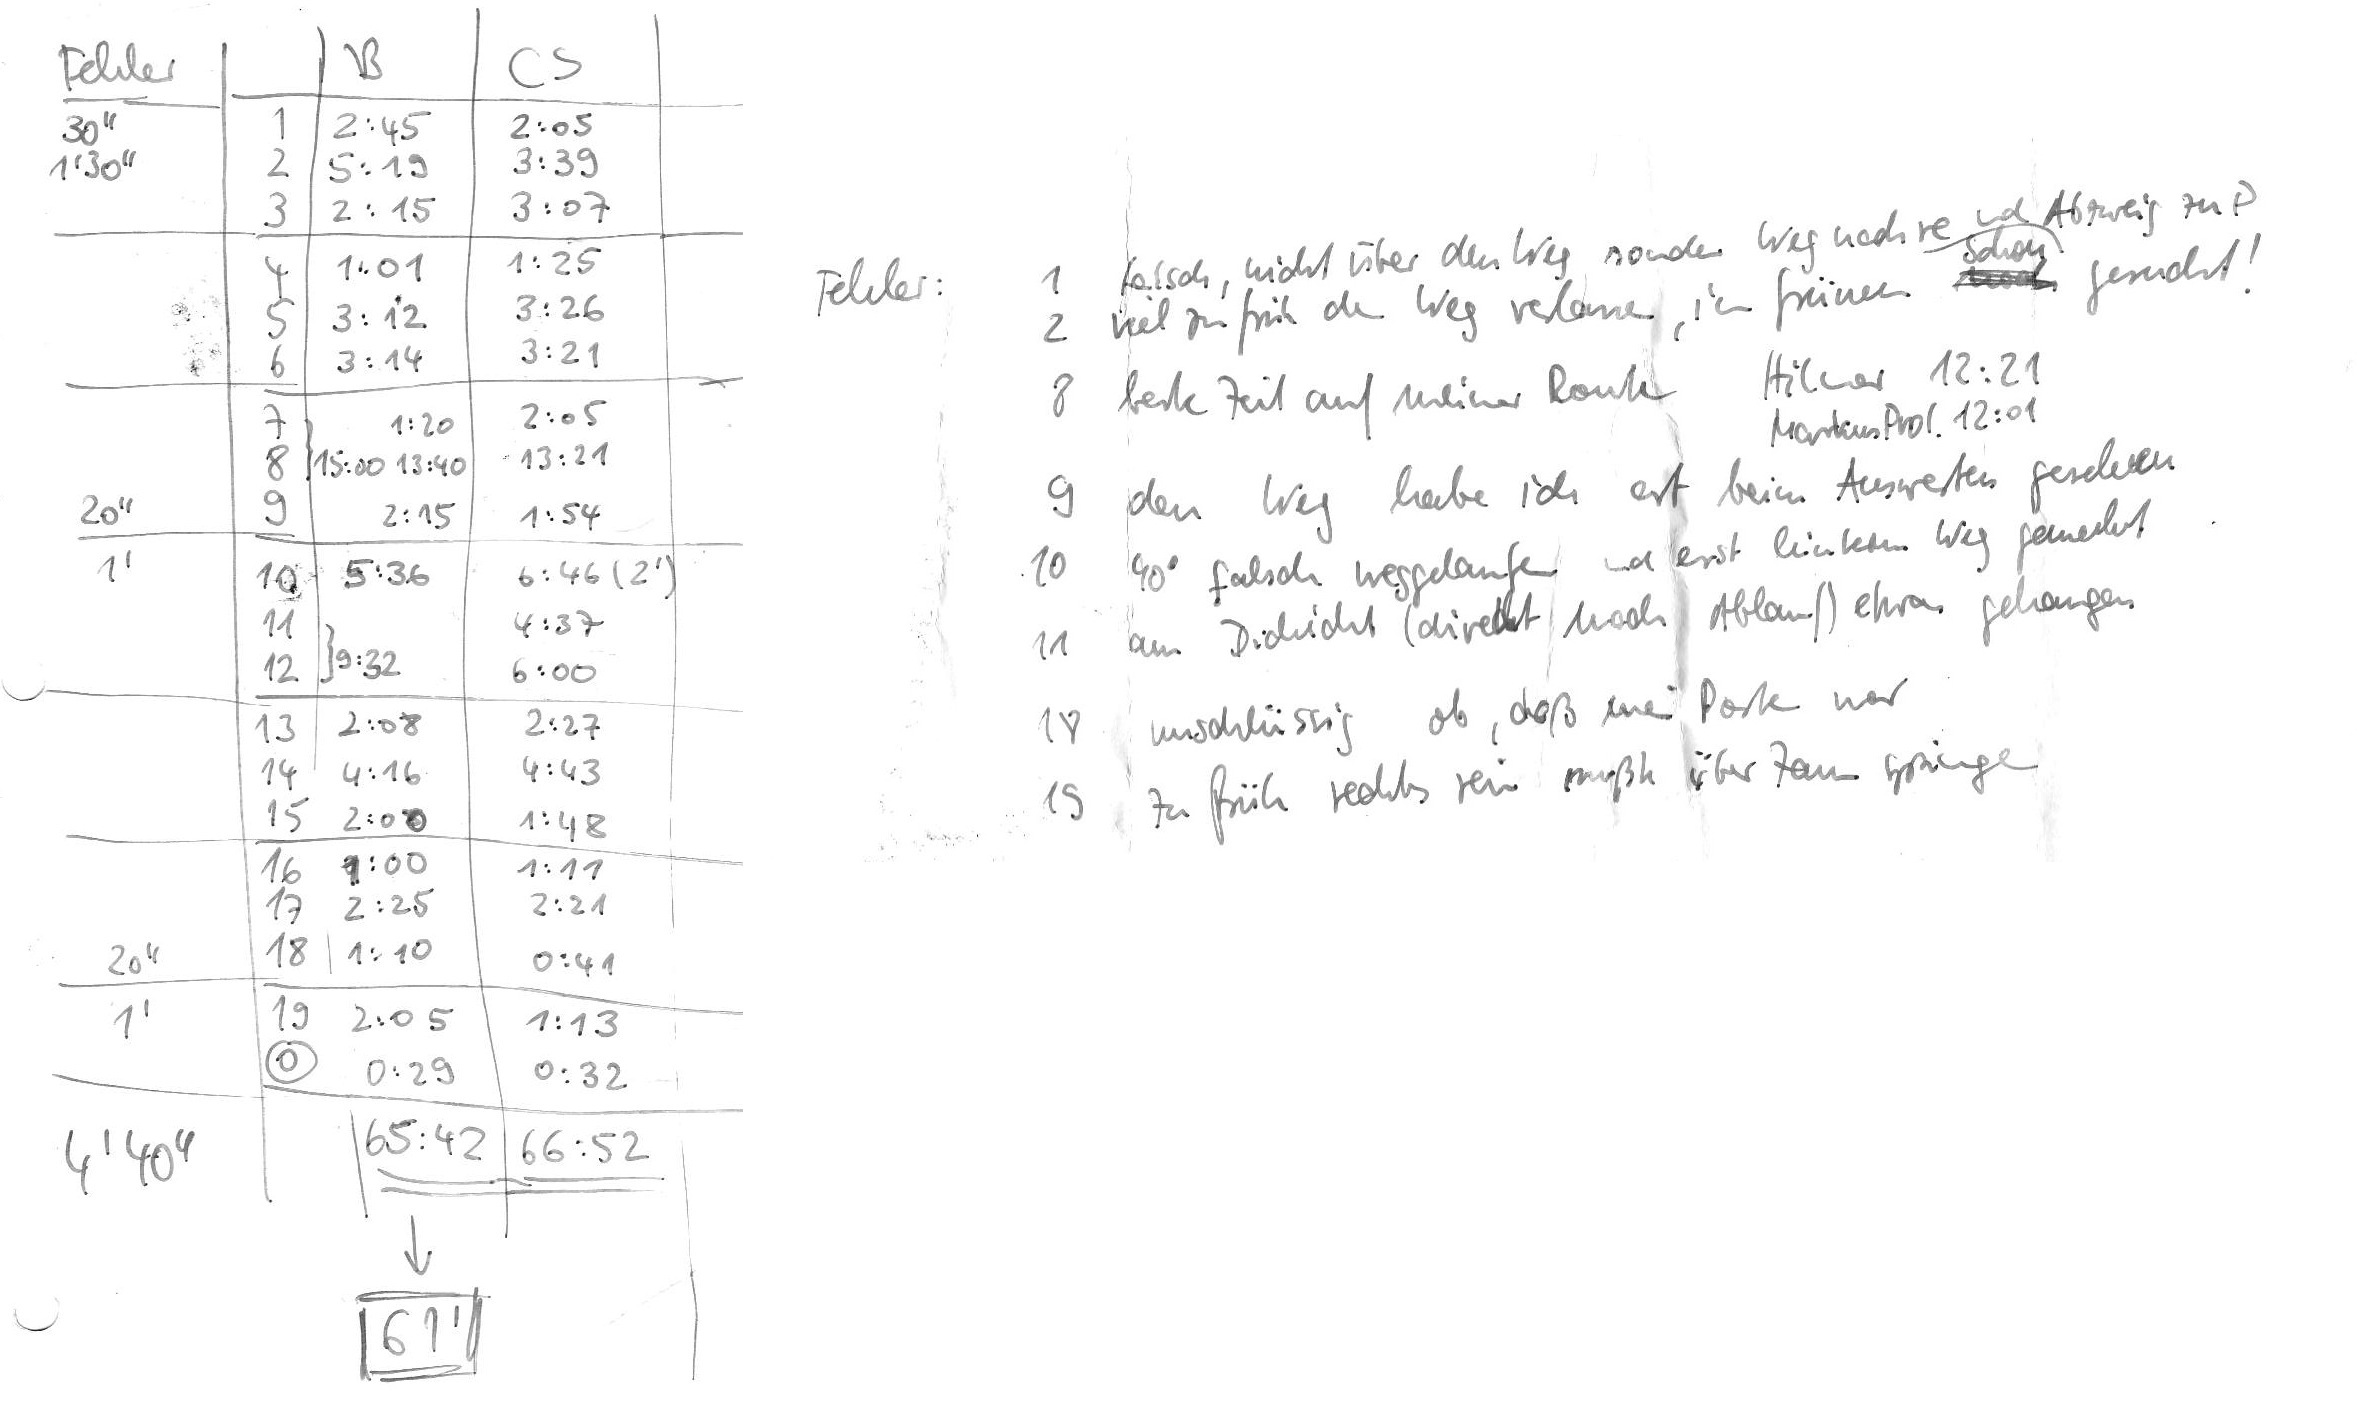 Fehler B CS
30" 1 2:45 2:05
1'30" 2 5:19 3:39
3 2:15 3:07
4 1:01 1:25
5 3:12 3:26
6 3:14 3:21
7 1:20 2:05
8 15:00 13:40 13:21
20" 9 2:15 1:54
1' 10 5:36 6:46 (2')
11 4:37
12 9:32 6:00
13 2:08 2:27
14 4:16 4:43
15 2:00 1:48
16 1:00 1:11
17 2:25 2:21
20" 18 1:10 0:41
1' 19 2:05 1:13
0 0:29 0:32
4'40" 65:42 66:52
61'
Fehler: 1 falsch, nicht über den Weg sondern Weg nach re und Abzweig zu P
2 viel zu früh den Weg verlassen, im grünen schon gesucht!
8 beste Zeit auf meiner Route Hilmar 12:21
Markus Prof. 12:01
9 den Weg habe ich erst beim Auswerten gesehen
10 40° falsch weggelaufen und erst linken Weg gemerkt
11 am Dickicht (direkt nach Ablauf) etwas gehangen
18 unschlüssig ob, daß mei Posten war
19 zu früh rechts rein mußte über Zaun springe